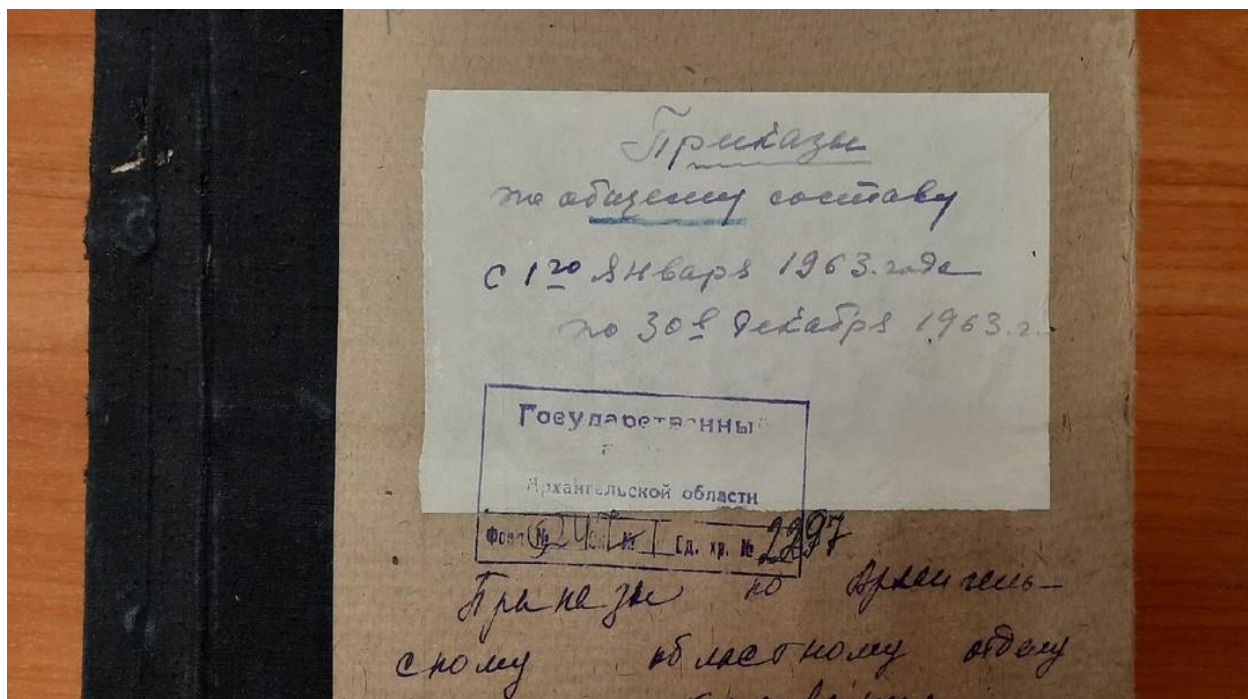 Приказы
по общему составу
с 1го января 1963. года
по 30е декабря 1963. г.
Государственный
Архангельской области
Фонд № Оп. № 1 Ед. хр. № 2297
Приказы по Архангель-
скому областному отделу